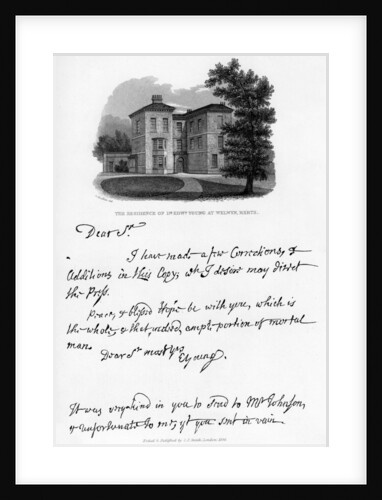 THE RESIDENCE OF DR. EDWD. YOUNG, AT WELWYN, HERTS.
Dear Sr.
I have made a few Corrections, &
Additions in this Copy; wh I desire may direct
the Press.
Peace, & blessed Hope be with you, which is
the whole, & that, indeed, ample portion of mortal
man.
Dear Sr most yrs
EYoung.
It was very kind in you to send to Mr Johnson,
& unfortunate to me, yt you sent in vain.